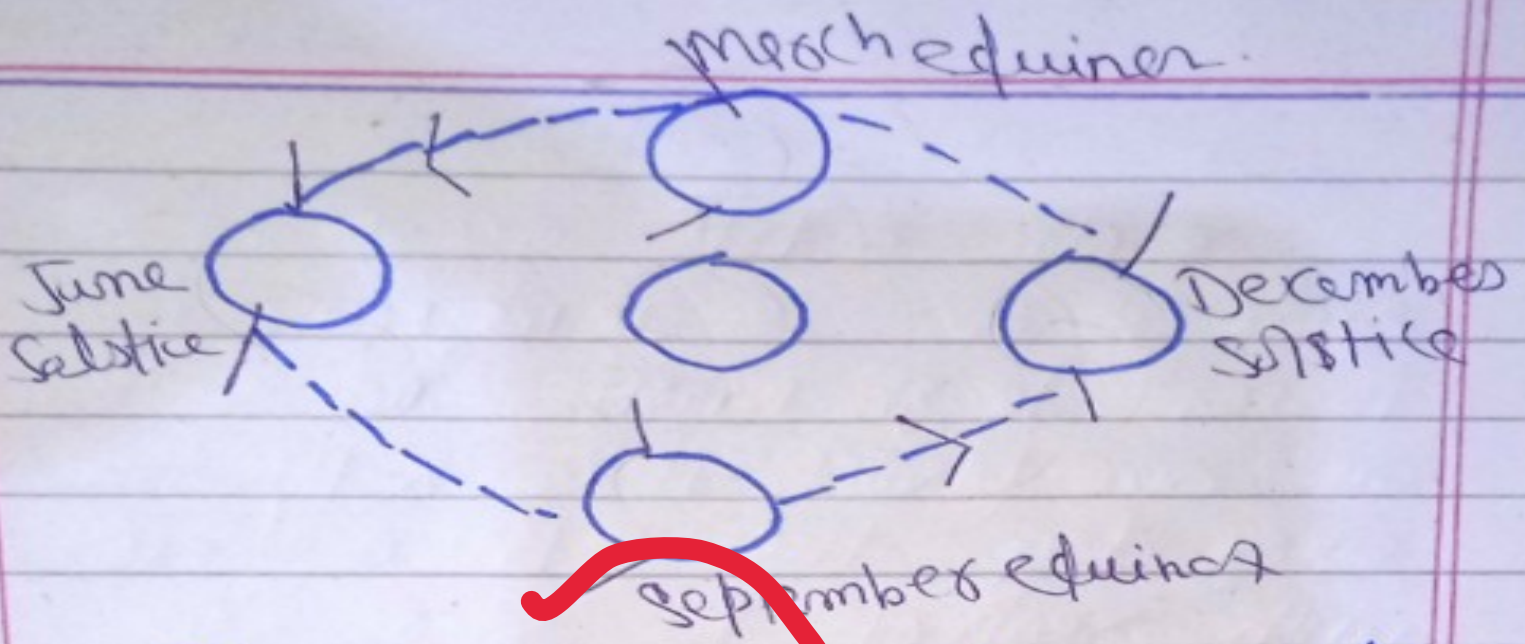 March equinox.
June
Solstice
December
Solstice
September equinox